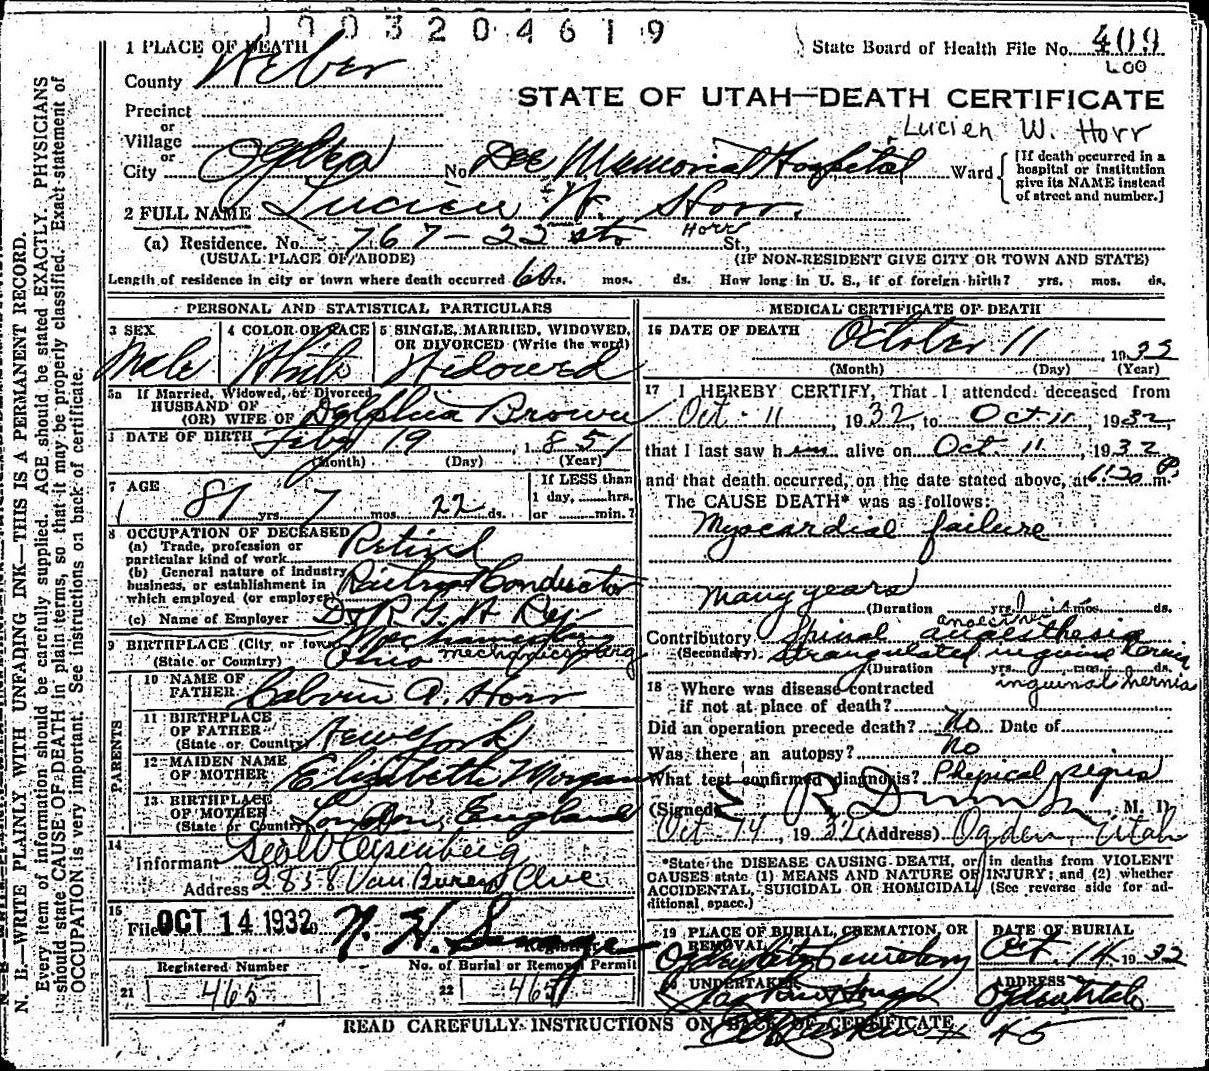 1 0 0 3 2 0 4 6 1 9
1 PLACE OF DEATH
State Board of Health File No. 409
L00
County Weber
STATE OF UTAH—DEATH CERTIFICATE
Precinct
or
Lucien W. Horr
Village
or
City Ogden No. Dee Memorial Hospital Ward
[If death occurred in a hospital or institution give its NAME instead of street and number.]
2 FULL NAME Lucien W. Horr.
Horr
(a) Residence. No. 767-22 St.,
(USUAL PLACE OF ABODE) (IF NON-RESIDENT GIVE CITY OR TOWN AND STATE)
Length of residence in city or town where death occurred 60 yrs. mos. ds. How long in U. S., if of foreign birth? yrs. mos. ds.
PERSONAL AND STATISTICAL PARTICULARS
3 SEX
Male
4 COLOR OR RACE
White
5 SINGLE, MARRIED, WIDOWED, OR DIVORCED (Write the word)
Widowed
5a If Married, Widowed, or Divorced
HUSBAND OF
(OR) WIFE OF Delphia Brown
DATE OF BIRTH Feby 19, 1851
(Month) (Day) (Year)
7 AGE
81 yrs. 7 mos. 22 ds.
If LESS than
1 day, hrs.
or min.?
8 OCCUPATION OF DECEASED
(a) Trade, profession or particular kind of work Retired
(b) General nature of industry, business, or establishment in which employed (or employer) Railroad Conductor
(c) Name of Employer D. R. G. W. Ry.
9 BIRTHPLACE (City or town) Mechanicsburg
(State or Country) Ohio mechanicsburg
PARENTS
10 NAME OF FATHER Calvin A. Horr
11 BIRTHPLACE OF FATHER (State or Country) New York
12 MAIDEN NAME OF MOTHER Elizabeth Morgan
13 BIRTHPLACE OF MOTHER (State or Country) London, England
14
Informant Geo W Eisenberg
Address 2858 Van Buren Ave
15
Filed OCT 14 1932 N. H. Savage
Registrar
Registered Number
21 465
No. of Burial or Removal Permit
22 465
MEDICAL CERTIFICATE OF DEATH
16 DATE OF DEATH
October 11, 1932
(Month) (Day) (Year)
17 I HEREBY CERTIFY, That I attended deceased from
Oct. 11, 1932, to Oct 11, 1932,
that I last saw him alive on Oct. 11, 1932
and that death occurred, on the date stated above, at 6:20 P. m.
The CAUSE DEATH* was as follows:
Myocardial failure
many years
(Duration yrs. mos. ds.
Contributory Spinal anaesthesia
(Secondary). Strangulated inguinal hernia
(Duration yrs. mos. ds.
inguinal hernia
18 Where was disease contracted
if not at place of death?
Did an operation precede death? No Date of
Was there an autopsy? No
What test confirmed diagnosis? Physical signs
(Signed) E R Dumke, M. D.
Oct 14, 1932 (Address) Ogden, Utah
*State the DISEASE CAUSING DEATH, or in deaths from VIOLENT
CAUSES state (1) MEANS AND NATURE OF INJURY; and (2) whether
ACCIDENTAL, SUICIDAL OR HOMICIDAL. (See reverse side for ad-
ditional space.)
19 PLACE OF BURIAL, CREMATION, OR REMOVAL
Ogden City Cemetery
DATE OF BURIAL
Oct. 14 1932
20 UNDERTAKER
ADDRESS
Ogden Utah
READ CAREFULLY INSTRUCTIONS ON BACK OF CERTIFICATE
# 45
N. B.—WRITE PLAINLY WITH UNFADING INK—THIS IS A PERMANENT RECORD.
Every item of information should be carefully supplied. AGE should be stated EXACTLY. PHYSICIANS
should state CAUSE OF DEATH in plain terms, so that it may be properly classified. Exact statement of
OCCUPATION is very important. See instructions on back of certificate.